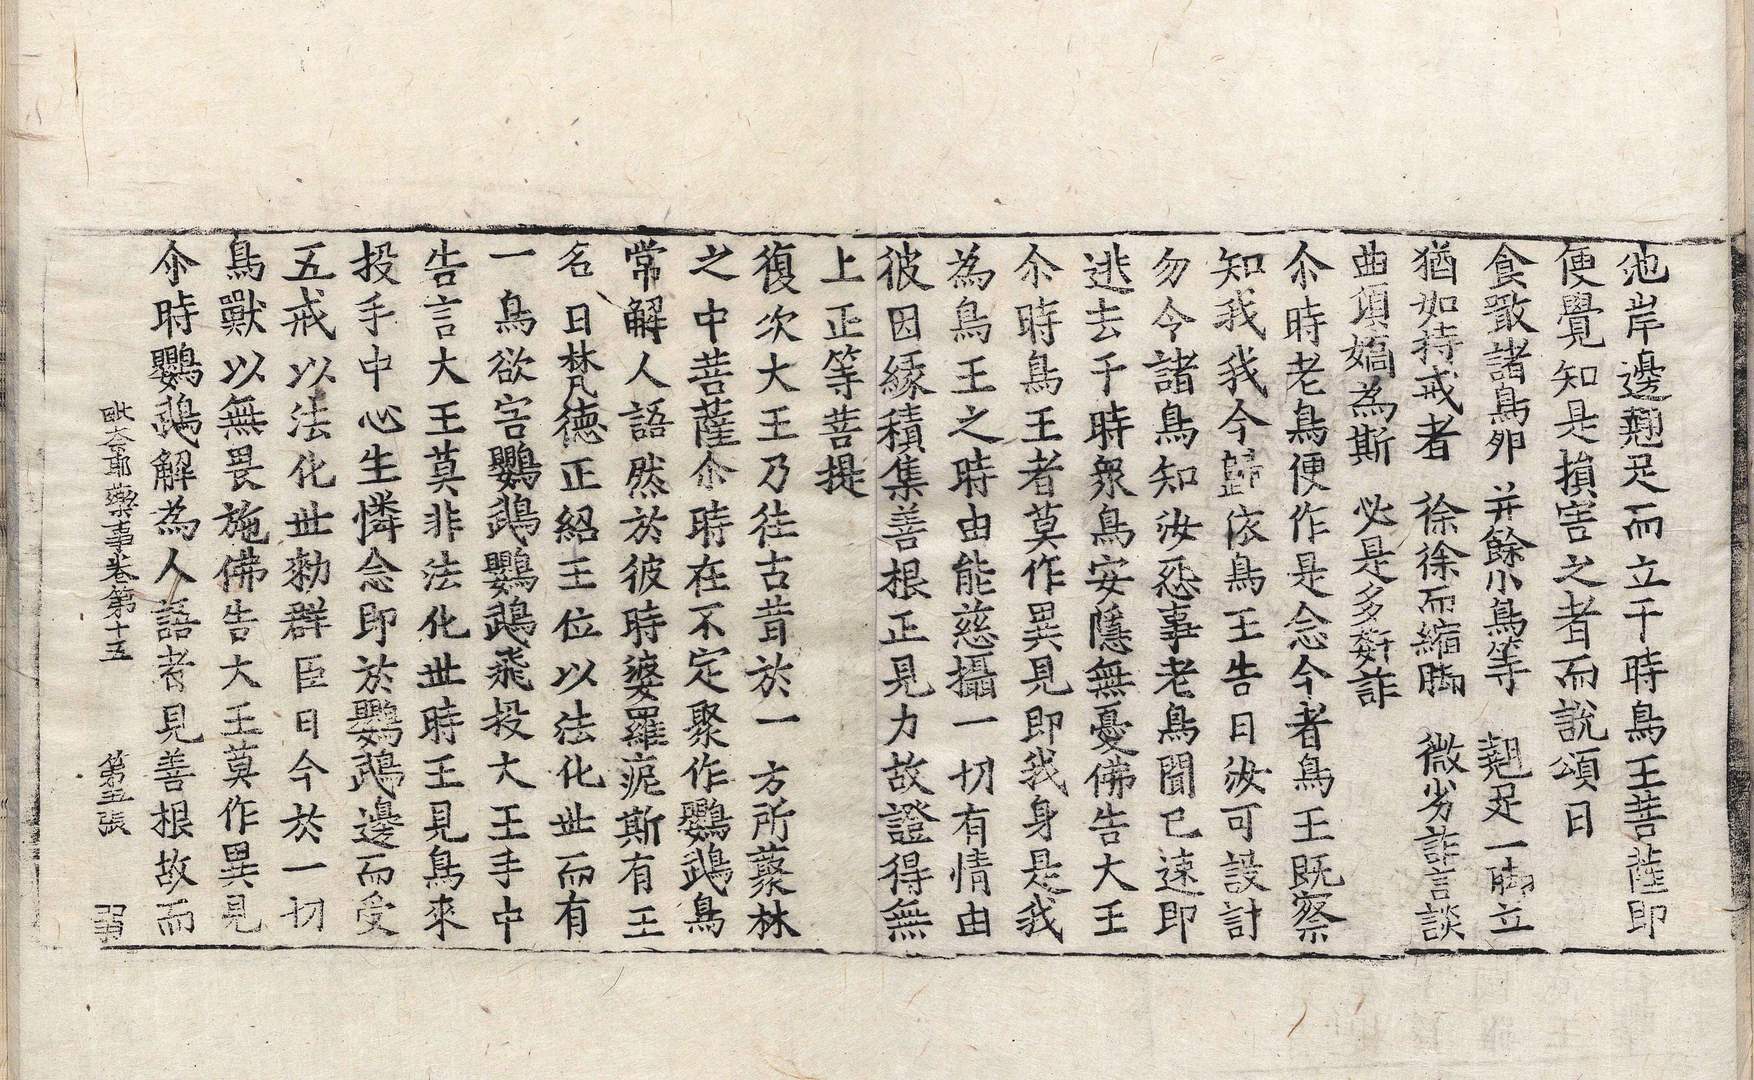 池岸邊翹足而立于時鳥王菩薩即
便覺知是損害之者而說頌曰
食噉諸鳥卵 并餘小鳥等 翹足一脚立
猶如持戒者 徐徐而縮脚 微劣詐言談
曲項嬌為斯 必是多姧詐
尒時老鳥便作是念今者鳥王既察
知我我今歸依鳥王告曰汝可設計
勿令諸鳥知汝惡事老鳥聞已速即
逃去于時衆鳥安隱無憂佛告大王
尒時鳥王者莫作異見即我身是我
為鳥王之時由能慈攝一切有情由
彼因緣積集善根正見力故證得無
上正等菩提
復次大王乃往古昔於一方所藂林
之中菩薩尒時在不定聚作鸚鵡鳥
常解人語然於彼時婆羅痆斯有王
名曰梵德正紹王位以法化世而有
一鳥欲害鸚鵡鸚鵡飛投大王手中
告言大王莫非法化世時王見鳥來
投手中心生憐念即於鸚鵡邊而受
五戒以法化世勑群臣曰今於一切
鳥獸以無畏施佛告大王莫作異見
尒時鸚鵡解為人語者見善根故而
毗奈耶藥事卷第十五 第五張